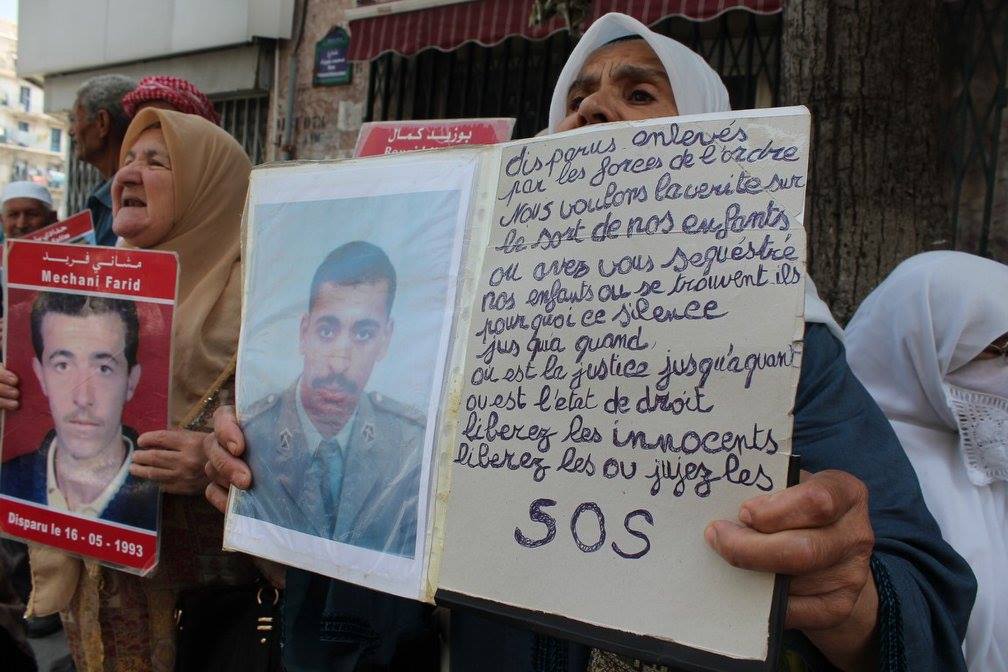 مشاني فريد
Mechani Farid
Disparu le 16-05-1993
بوزيد كمال
disparus enlevés
par les forces de l'ordre
Nous voulons la verite sur
le sort de nos enfants
ou avez vous sequéstré
nos enfants ou se trouvent.ils
pourquoi ce silence
jus qu'a quand
ou est la justice jusqu'a quant
ou est l'etat de droit
liberez les innocents
liberez les ou jujez les
SOS